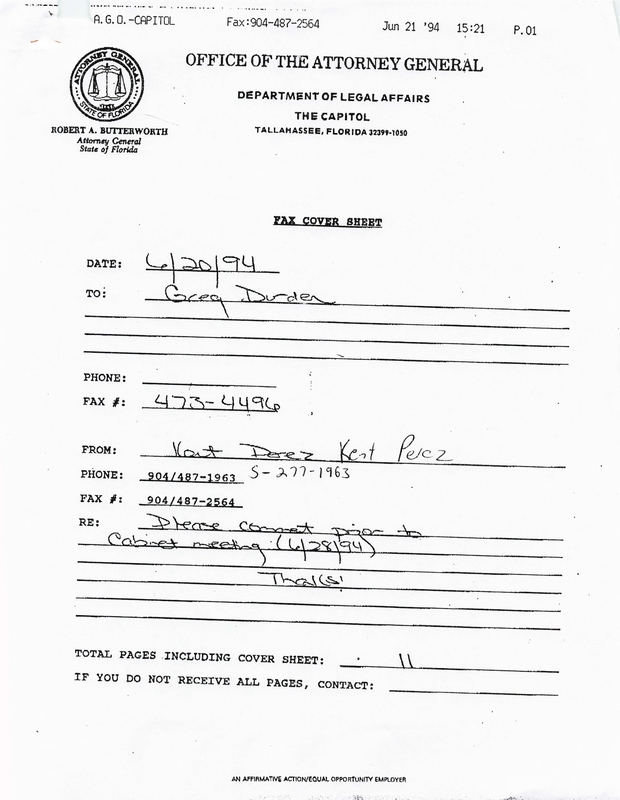 A.G.O.-CAPITOL Fax:904-487-2564 Jun 21 '94 15:21 P.01
ATTORNEY GENERAL
STATE OF FLORIDA
OFFICE OF THE ATTORNEY GENERAL
DEPARTMENT OF LEGAL AFFAIRS
THE CAPITOL
TALLAHASSEE, FLORIDA 32399-1050
ROBERT A. BUTTERWORTH
Attorney General
State of Florida
FAX COVER SHEET
DATE: 6/20/94
TO: Greg Durden
PHONE:
FAX #: 473-4496
FROM: Kent Perez Kent Perez
PHONE: 904/487-1963 S-277-1963
FAX #: 904/487-2564
RE: Please comment prior to
Cabinet meeting (6/28/94)
TOTAL PAGES INCLUDING COVER SHEET: 11
IF YOU DO NOT RECEIVE ALL PAGES, CONTACT:
AN AFFIRMATIVE ACTION/EQUAL OPPORTUNITY EMPLOYER